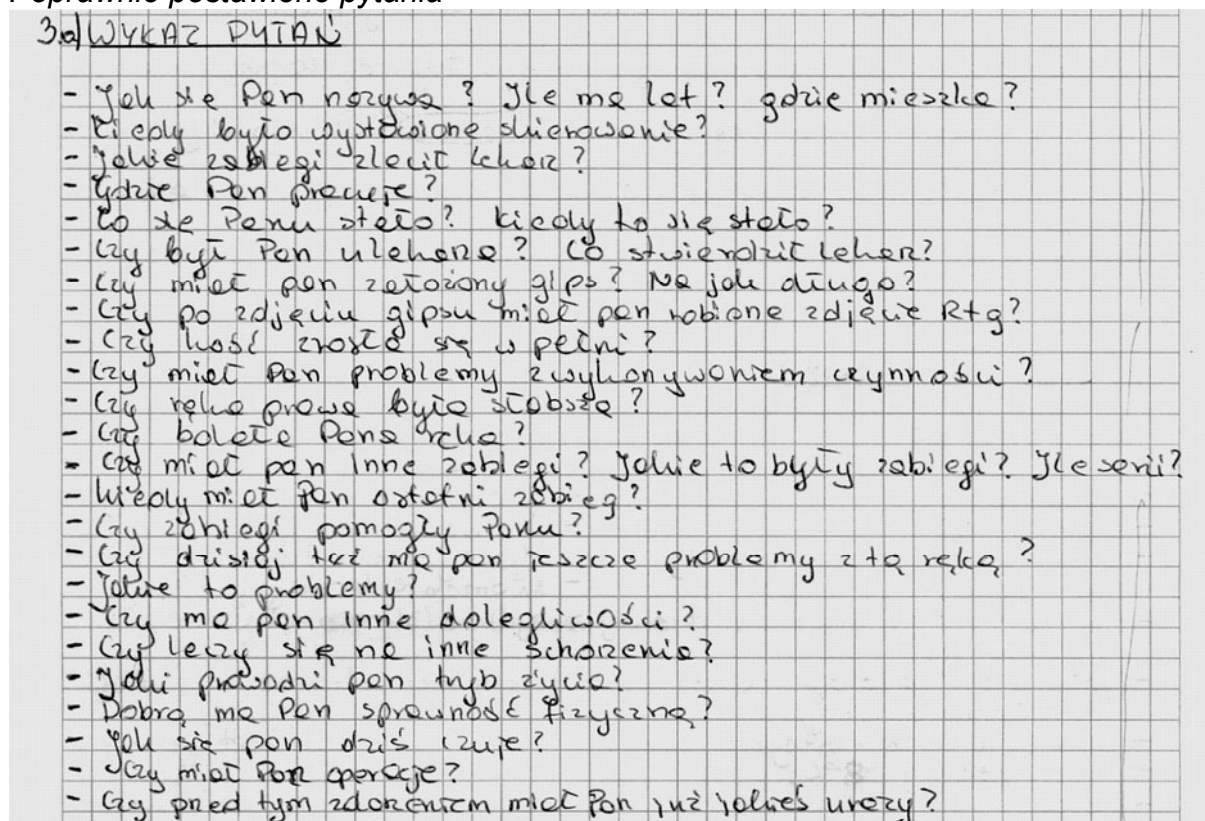 Poprawnie postawione pytania
3.a) WYKAZ PYTAŃ
- Jak się Pan nazywa? Ile ma lat? gdzie mieszka?
- Kiedy było wystawione skierowanie?
- Jakie zabiegi zlecił lekarz?
- Gdzie Pan pracuje?
- Co się Panu stało? kiedy to się stało?
- Czy był Pan u lekarza? Co stwierdził lekarz?
- Czy miał pan założony gips? Na jak długo?
- Czy po zdjęciu gipsu miał pan robione zdjęcie Rtg?
- Czy kość zrosła się w pełni?
- Czy miał Pan problemy z wykonywaniem czynności?
- Czy ręka prawa była słabsza?
- Czy bolała Pana ręka?
- Czy miał pan inne zabiegi? Jakie to były zabiegi? Ile serii?
- kiedy miał Pan ostatni zabieg?
- Czy zabiegi pomogły Panu?
- Czy dzisiaj też ma pan jeszcze problemy z tą ręką?
- jakie to problemy?
- Czy ma pan inne dolegliwości?
- Czy leczy się na inne schorzenia?
- Jaki prowadzi pan tryb życia?
- Dobrą ma Pan sprawność fizyczną?
- Jak się pan dziś czuje?
- Czy miał Pan operacje?
- Czy przed tym zdarzeniem miał Pan już jakieś urazy?